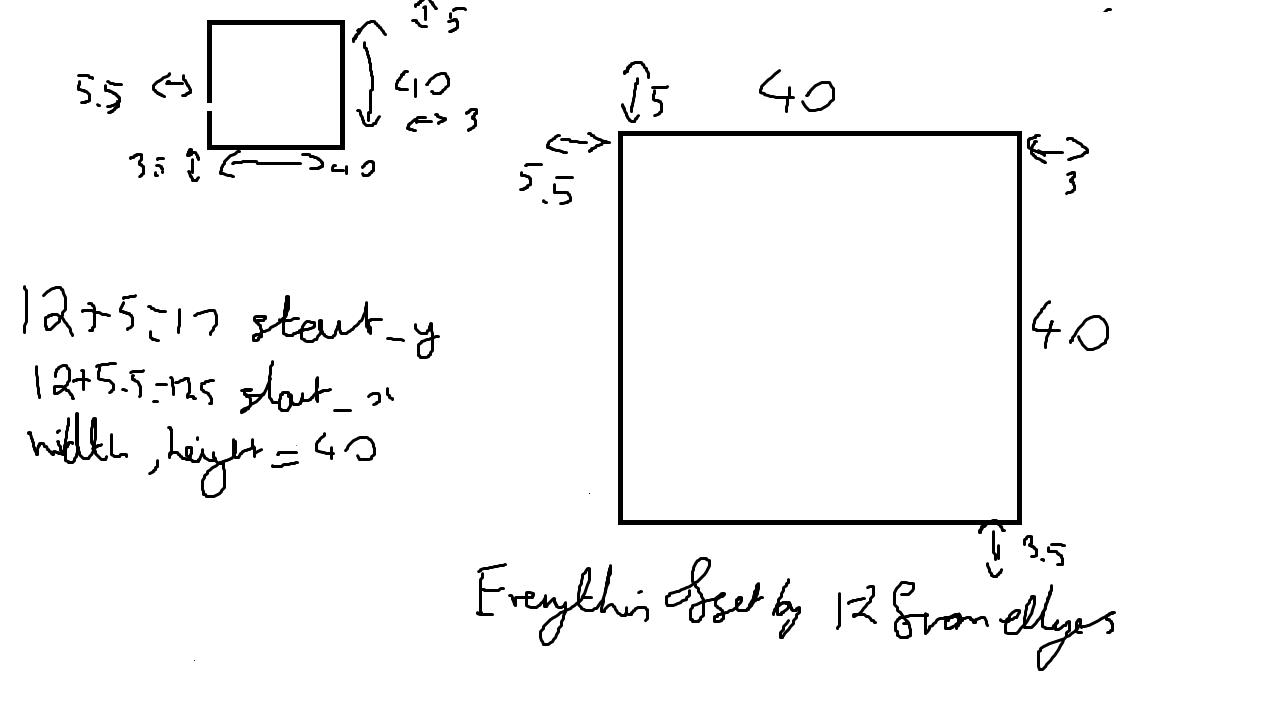 5
5.5
40
3
3.5
40
5
40
5.5
3
40
12+5=17 start_y
12+5.5=17.5 start_x
width, height = 40
3.5
Everything offset by 12 from edges